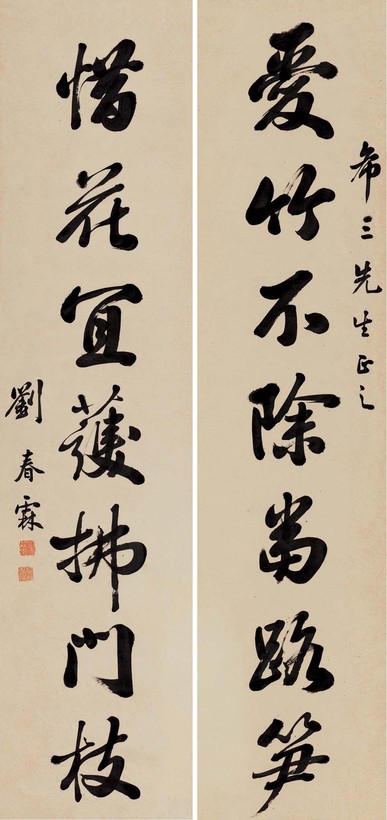 希三先生正之
愛竹不除當路笋
惜花宜護拂門枝
劉春霖